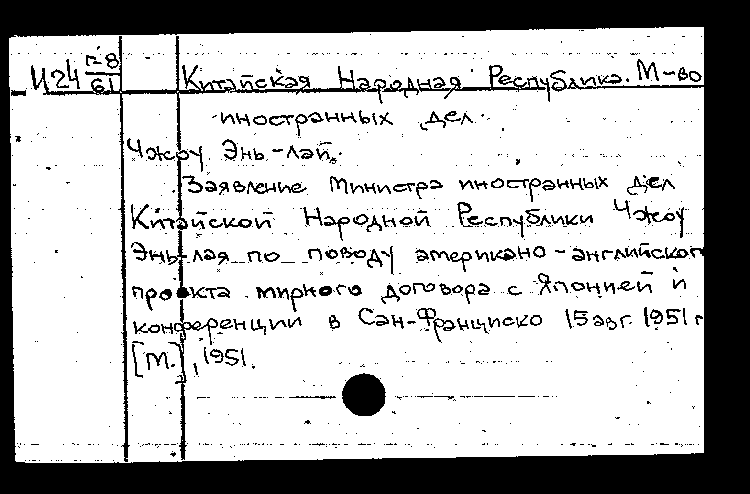 И24 п-8/61 Китайская Народная Республика. М-во
иностранных дел.
Чжоу Энь-лай.
Заявление Министра иностранных дел
Китайской Народной Республики Чжоу
Энь-лая по поводу американо-английского
проекта мирного договора с Японией и
конференции в Сан-Франциско 15 авг. 1951 г
[М.], 1951.